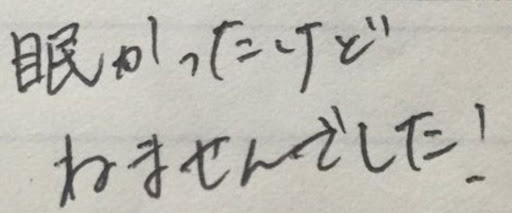 眠かったけど
ねませんでした!